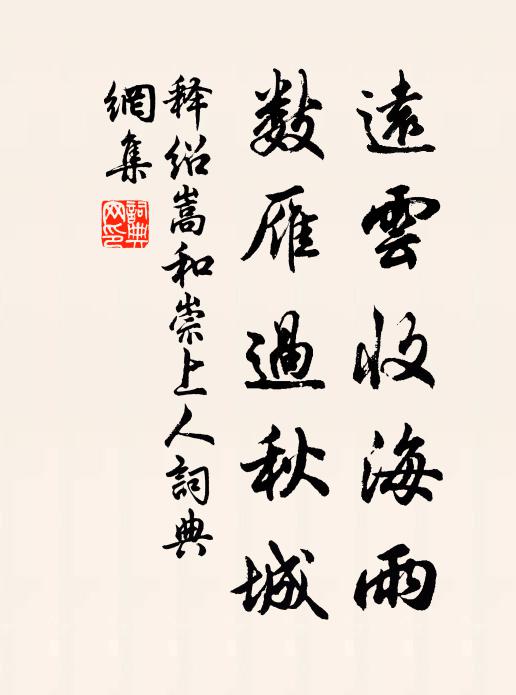 遠雲收海雨
數雁過秋城
释绍嵩和崇上人詞典
網集
詞典
网印